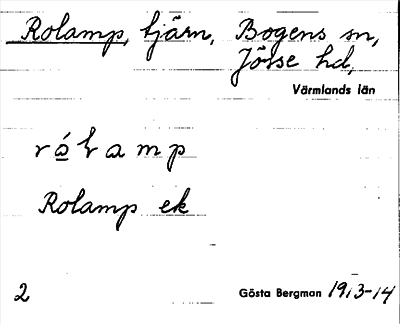 Rolamp, tjärn, Bogens sn,
Jösse hd,
Värmlands län
Rolamp ek
2
Gösta Bergman 1913-14